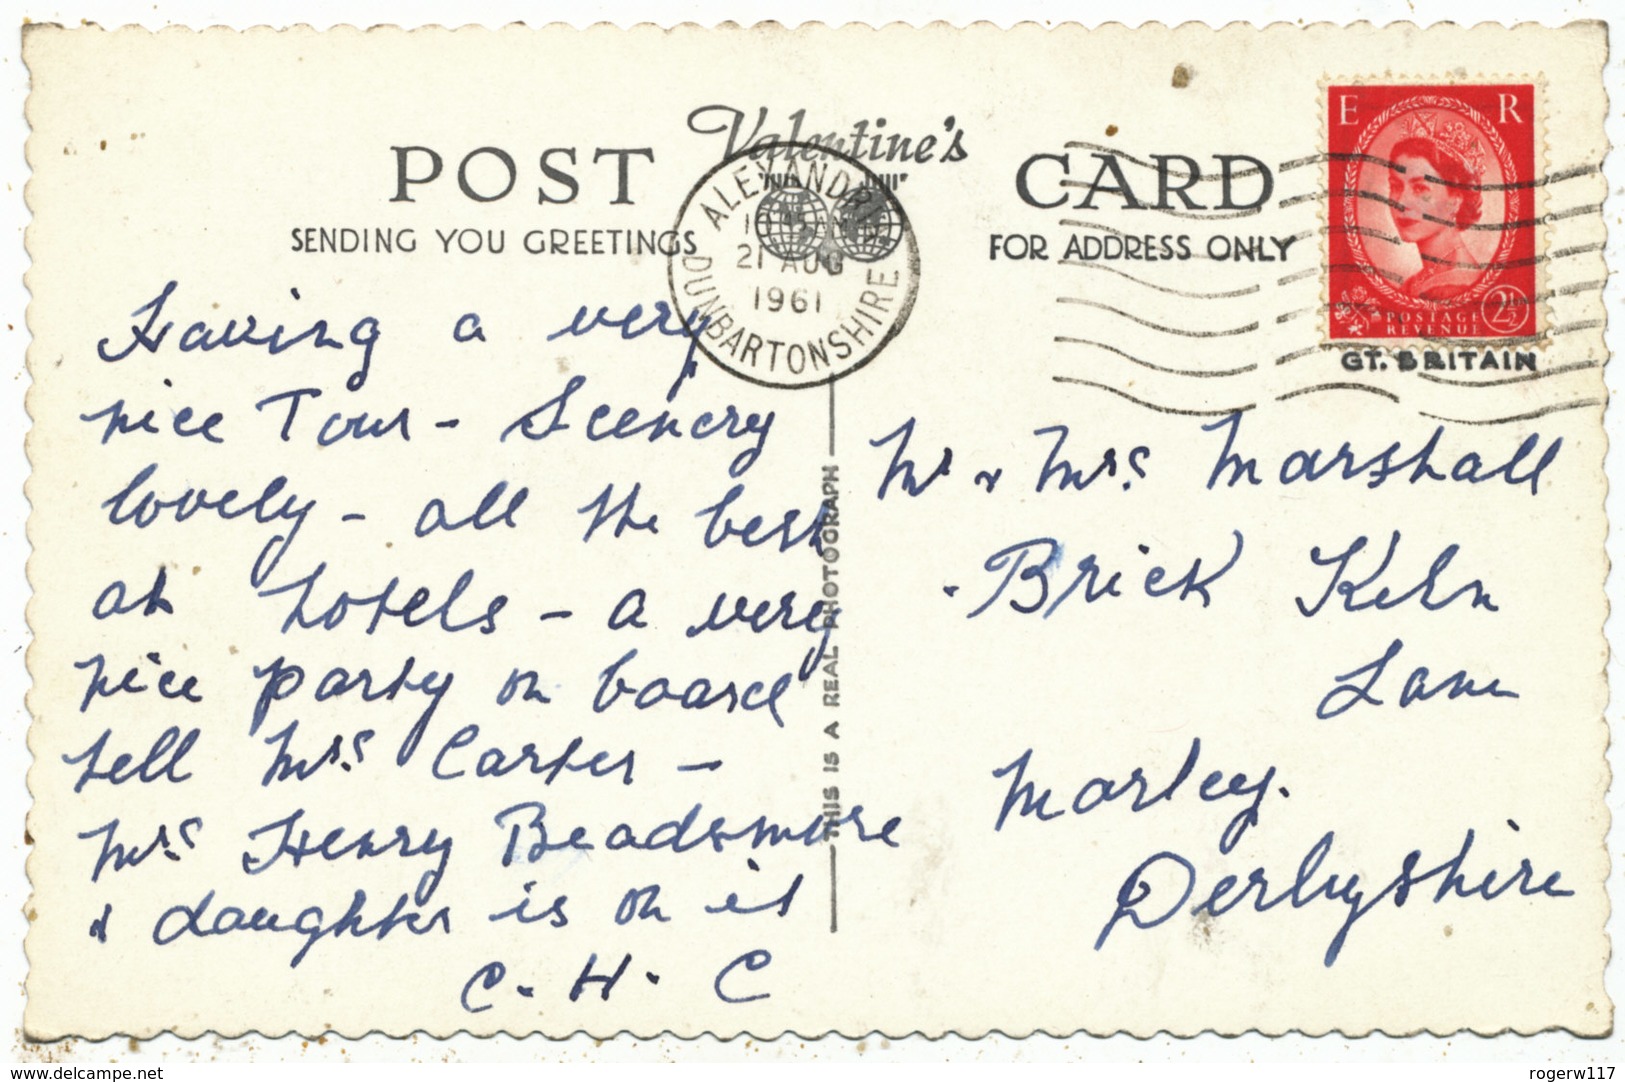 Valentine's
POST CARD
SENDING YOU GREETINGS
FOR ADDRESS ONLY
ALEXANDRIA
21 AUG
1961
DUNBARTONSHIRE
E R
POSTAGE
REVENUE
2½
GT. BRITAIN
THIS IS A REAL PHOTOGRAPH
Having a very
nice Tour - Scenery
lovely - all the best
at hotels - a very
nice party on board
tell Mrs. Carter -
Mrs Henry Beadsmore
& daughter is on it
C. H. C
Mr & Mrs. Marshall
Brick Kiln
Lane
Morley.
Derbyshire
delcampe.net
rogerw117